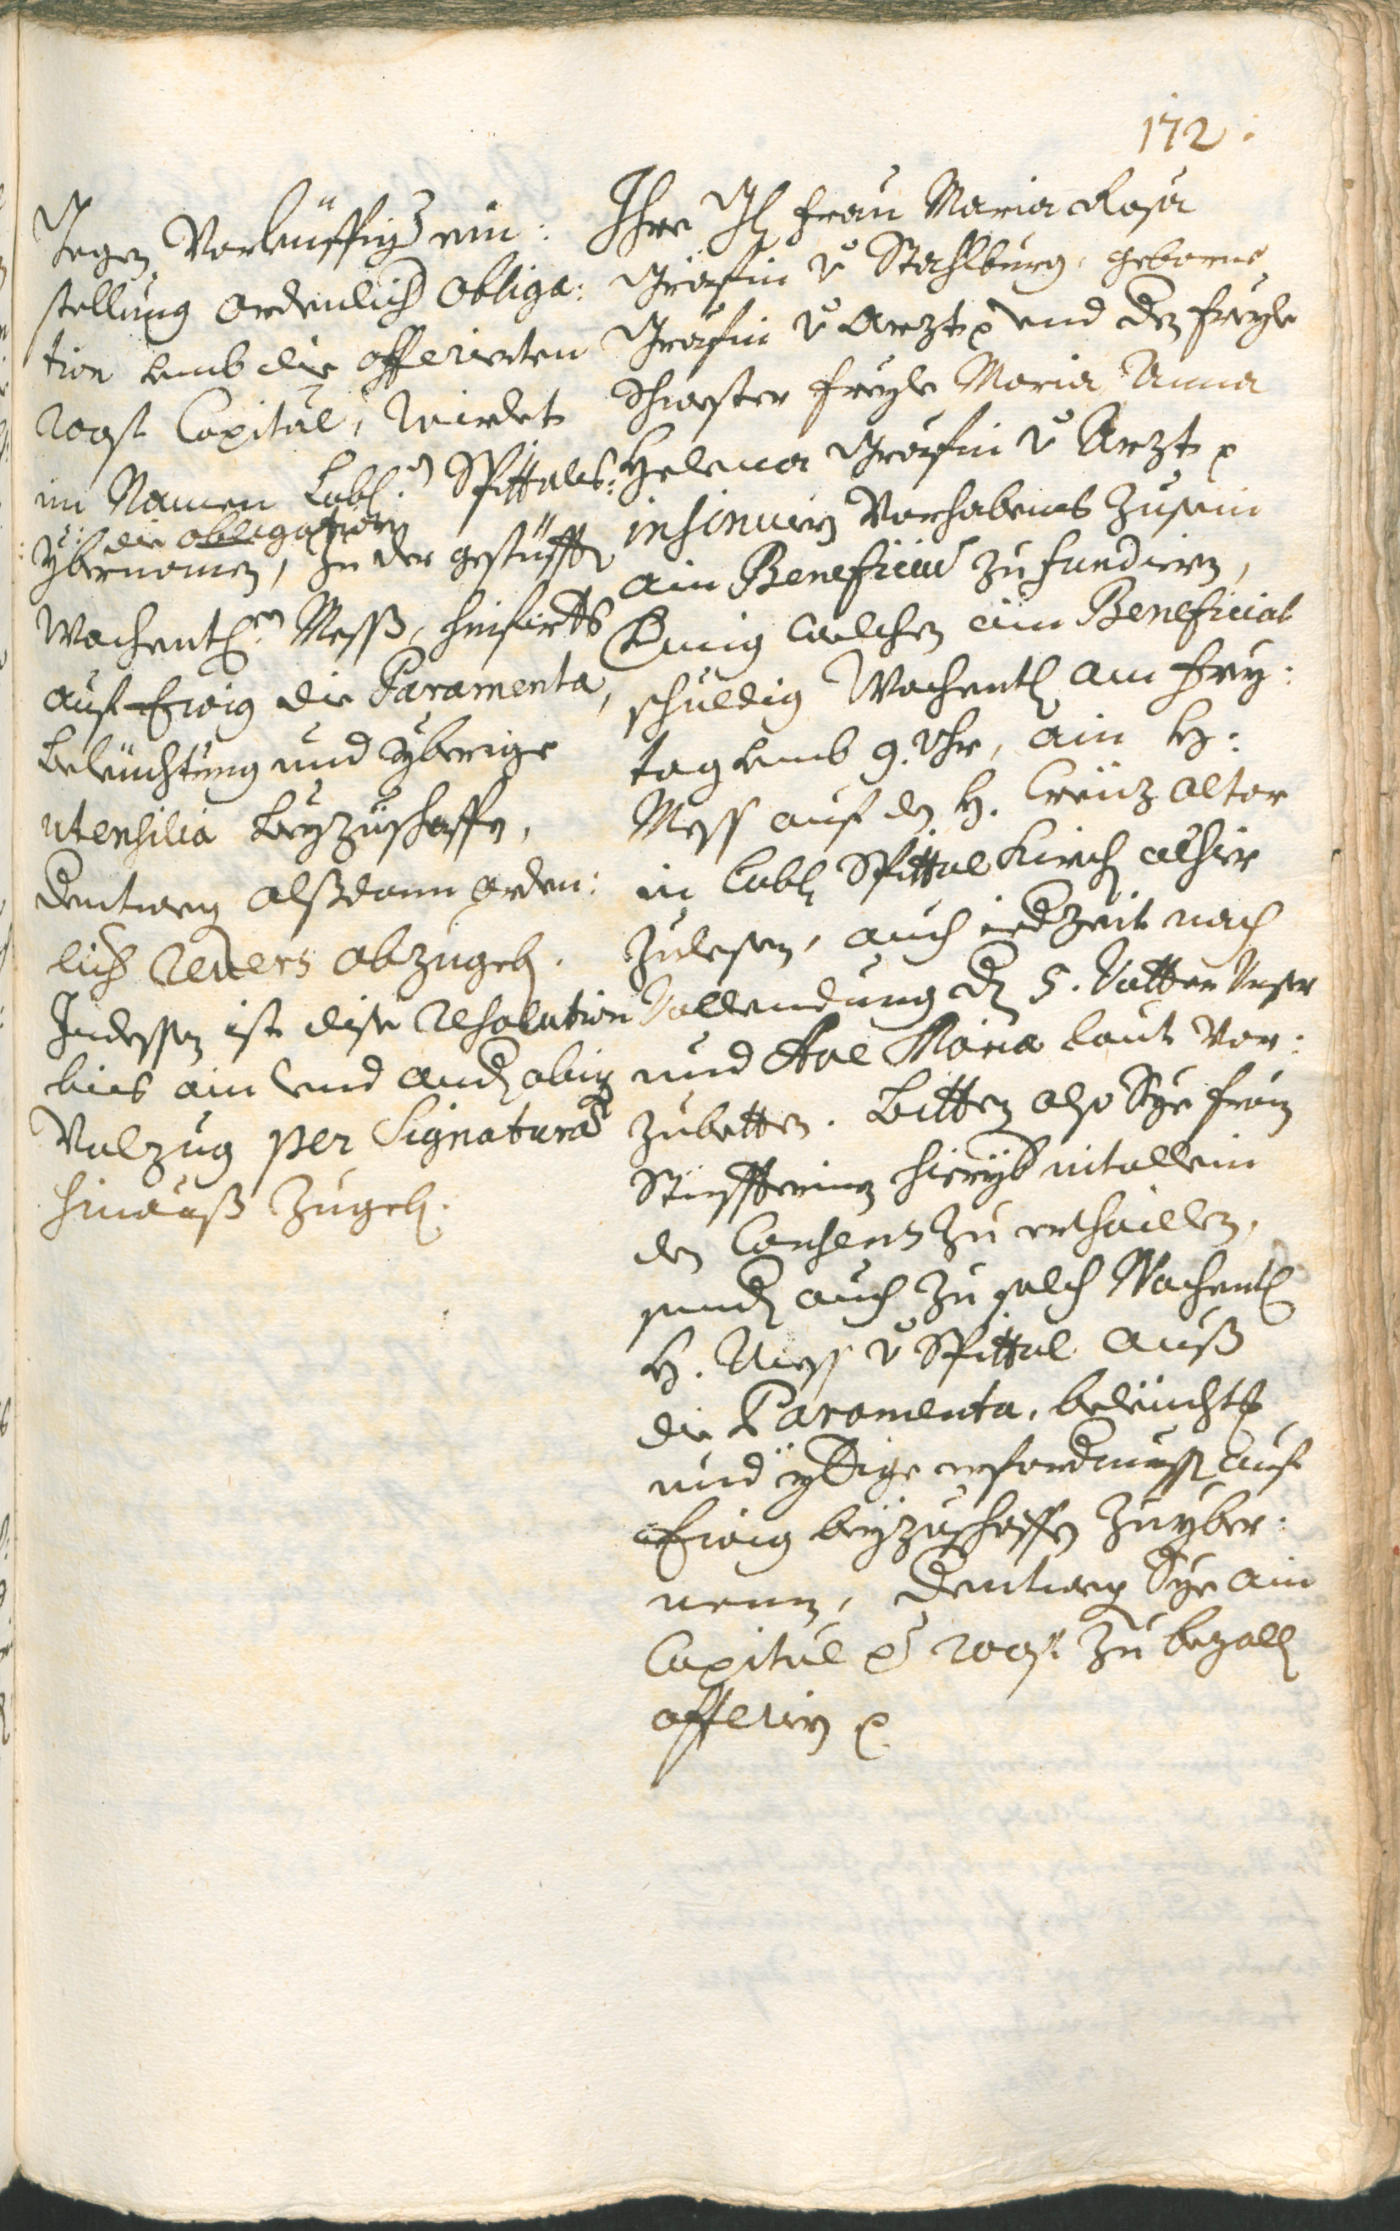 172.
Gegen Vorleüffig ein:
stellung ordenlich obliga:
tion umb die offerierten
200 f Capital, wirdet
im Namen Löbl: Spittals:
die obligation
ybernomen, zu der gestüfften
Wochentl: Mess, hinfirts
auf Ewig die Paramenta,
Beleüchtung und ybrige
utensilia Beyzuschaffen,
Dentweg alßdann orden:
lich Revers abzugeben.
Indessen ist dise Resolution
bies ain und anders obig
Volzug per Signatura
hinauß zugeben.
Ihro Gl Frau Maria Rosa
Gräfin v Stachlburg, geborne
Gräfin v Arzt p und der Freyle
Schwester Freyle Maria Anna
Helena Gräfin v Arzt p
insinuiern Vorhabens zusein
ain Beneficium zu fundiern,
Craft welchen ain Beneficiat
schuldig Wochentl am Frey:
tag umb 9. Uhr, ain H:
Mess auf den H. Creüz Altar
in Löbl Spittal Kirch alhier
zulesen, auch iedzeit nach
Vollendung der 5. Vatter Unser
und Ave Maria laut Vor:
zubetten. Bitten also Sye Frauen
Stüffterin hieryber nit allein
den Consens zu erthaillen,
sondern auch zu solch Wochentl
H. Mess v Spittal auß
die Paramenta, beleüchtung
und ybrige erfordernuss auf
Ewig beyzuschaffen zu yber:
nemen, Dentwegen Sye ain
Capital per 200 f zu bezallen
offeriern p